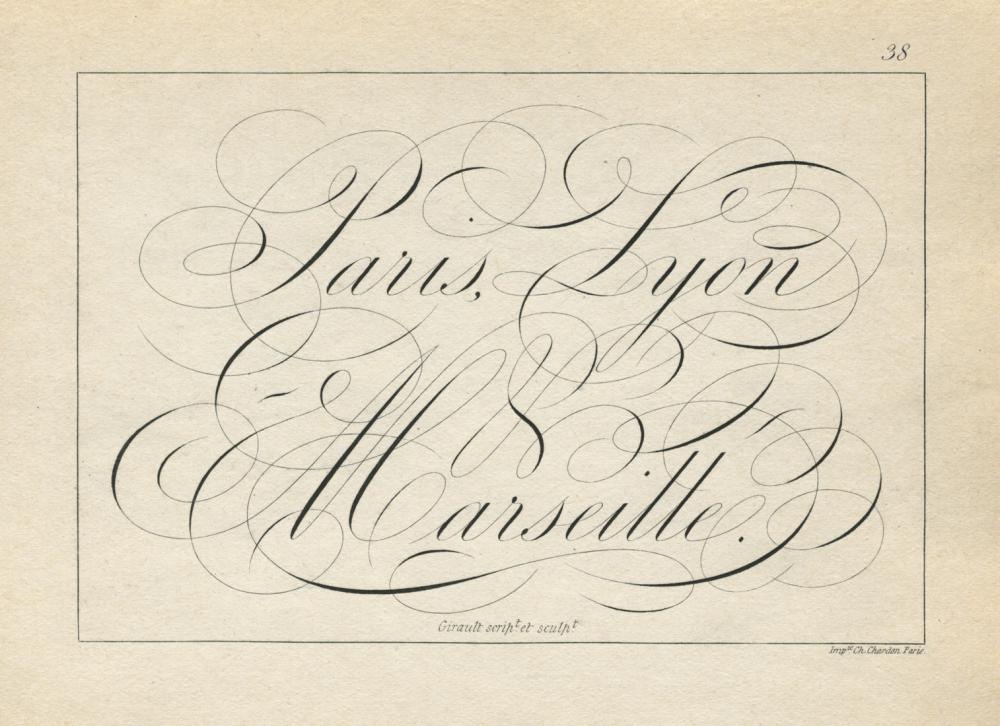 38
Paris, Lyon
& Marseille.
Girault scripᵗ. et sculpᵗ
Impᵉ. Ch. Chardon. Paris.